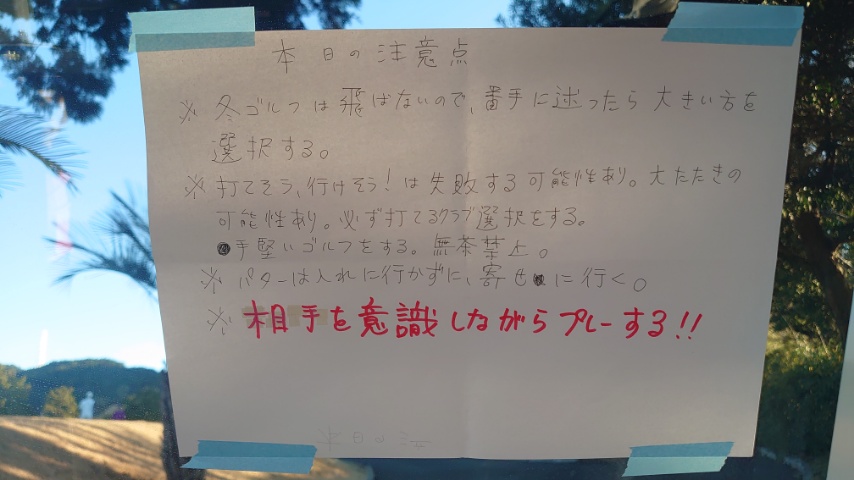 本日の注意点
※ 冬ゴルフは飛ばないので、番手に迷ったら大きい方を
選択する。
※ 打てそう、行けそう!は失敗する可能性あり。大たたきの
可能性あり。必ず打てるクラブ選択をする。
●手堅いゴルフをする。無茶禁止。
※ パターは入れに行かずに、寄せに行く。
※ 相手を意識しながらプレーする!!